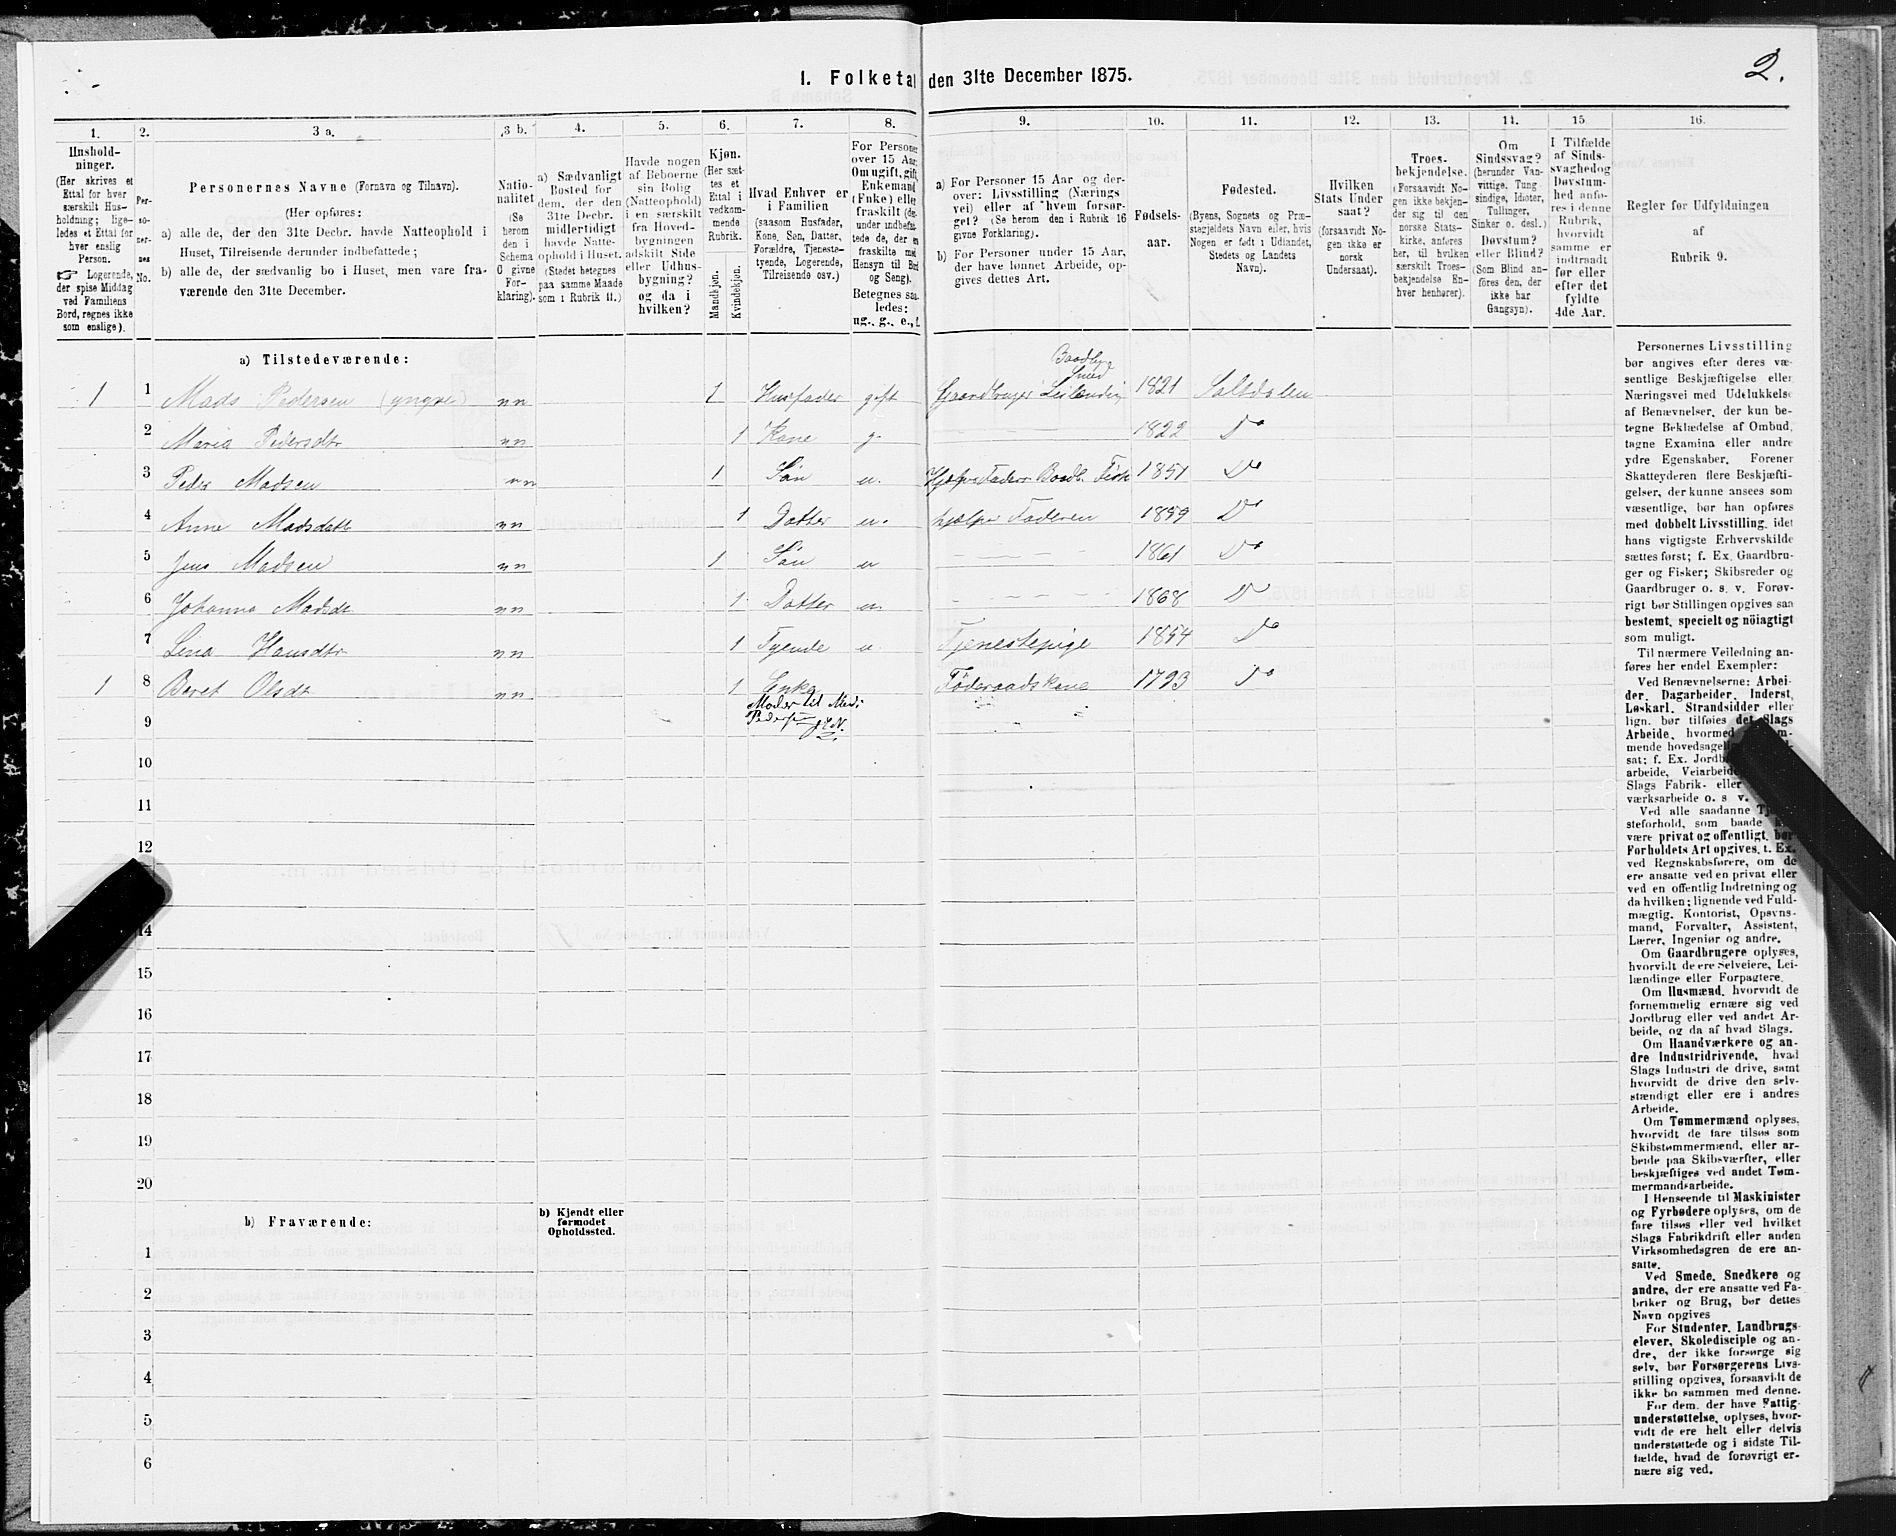 2.
1. Folketal den 31te December 1875.
1. 2. 3 a. 3 b. 4. 5. 6. 7. 8. 9. 10. 11. 12. 13. 14. 15. 16.
Hushold-
ninger.
(Her skrives et
Ettal for hver
særskilt Hus-
holdning; lige-
ledes et Ettal for
hver enslig
Person.
☞ Logerende,
der spise Middag
ved Familiens
Bord, regnes ikke
som enslige).
Per-
so-
ner-
nes
No.
Personernes Navne (Fornavn og Tilnavn).
(Her opføres:
a) alle de, der den 31te Decbr. havde Natteophold i
Huset, Tilreisende derunder indbefattede;
b) alle de, der sædvanlig bo i Huset, men vare fra-
værende den 31te December.
Natio-
nalitet
(Se
herom
den i
Schema
C givne
For-
klaring).
a) Sædvanligt
Bosted for
dem, der den
31te Decbr.
midlertidigt
havde Natte-
ophold i Huset.
(Stedet betegnes
paa samme Maade
som i Rubrik 11.)
Havde nogen
af Beboerne
sin Bolig
(Natteophold)
i en særskilt
fra Hoved-
bygningen
adskilt Side
eller Udhus-
bygning?
og da i
hvilken?
Kjøn.
(Her sæt-
tes et
Ettal i
vedkom-
mende
Rubrik.
Mandkjøn.
Kvindekjøn.
Hvad Enhver er
i Familien
(saasom Husfader,
Kone, Søn, Datter,
Forældre, Tjeneste-
tyende, Logerende,
Tilreisende osv.)
For Personer
over 15 Aar:
Om ugift, gift,
Enkemand
(Enke) eller
fraskilt (der-
under indbefat-
tede de, der ere
fraskilte med
Hensyn til Bord
og Seng).
Betegnes saa-
ledes:
ug., g., e., f.
a) For Personer 15 Aar og der-
over: Livsstilling (Nærings-
vei) eller af hvem forsør-
get? (Se herom den i Rubrik 16
givne Forklaring).
b) For Personer under 15 Aar,
der have lønnet Arbeide, op-
gives dettes Art.
Fødsels-
aar.
Fødested.
(Byens, Sognets og Præ-
stegjeldets Navn eller, hvis
Nogen er født i Udlandet,
Stedets og Landets
Navn).
Hvilken
Stats Under
saat?
(forsaavidt No-
gen ikke er
norsk
Undersaat).
Troes-
bekjendelse.
(Forsaavidt No-
gen ikke bekjen-
der sig til den
norske Stats-
kirke, anføres
her, til hvilken
særskilt Troes-
bekjendelse En-
hver henhører).
Om
Sindssvag?
(herunder Van-
vittige, Tung-
sindige, Idioter,
Tullinger,
Sinker o. desl.)
Døvstum?
eller Blind?
(Som Blind an-
føres den, der
ikke har
Gangsyn).
I Tilfælde
af Sinds-
svaghed og
Døvstum-
hed anfø-
res i denne
Rubrik,
hvorvidt
samme er
indtraadt
før eller
efter det
fyldte
4de Aar.
Regler før Udfyldningen
af
Rubrik 9.
a) Tilstedeværende:
1 1 Mads Pedersen (yngre) nn 1 Husfader gift Gaardbruger Leilending Baadbyg Smed 1821 Saltdalen
2 Maria Pedersdtr nn 1 Kone g. 1822 Do
3 Peder Madsen nn 1 Søn u. Hjelper Faderen Baadb. Fisk 1851 Do
4 Anne Madsdatt nn 1 Datter u. hjælper Faderen 1859 Do
5 Jens Madsen nn 1 Søn u 1861 Do
6 Johanna Madsdt nn 1 Datter u. 1868 Do
7 Lina Hansdtr nn 1 Tyende u Tjenestepige 1854 Do
1 8 Beret Olsdt nn 1 Enke Føderaadskone 1793 Do
Moder til Mads
Pedersen
9
10
11
12
14
15
16
17
18
19
20
b) Fraværende:
b) Kjendt eller
formodet
Opholdssted.
1
2
3
4
5
6
Personernes Livsstilling
bør angives efter deres væ-
sentlige Beskjæftigelse eller
Næringsvei med Udelukkelse
af Benævnelser, der kun be-
tegne Beklædelse af Ombud,
tagne Examina eller andre
ydre Egenskaber. Forener
Skatteyderen flere Beskjæfti-
gelser, der kunne ansees som
væsentlige, bør han opføres
med dobbelt Livsstilling, idet
hans vigtigste Erhvervskilde
sættes først; f. Ex. Gaardbru-
ger og Fisker; Skibsreder og
Gaardbruger o. s. v. Forøv-
rigt bør Stillingen opgives saa
bestemt, specielt og nöiagtigt
som muligt.
Til nærmere Veiledning an-
føres her endel Exempler:
Ved Benævnelserne: Arbei-
der, Dagarbeider, Inderst,
Løskarl, Strandsidder eller
lign. bør tilføies det Slags
Arbeide, hvormed
mende hovedsagelig
sat; f. Ex. Jordb
arbeide, Veiarbeide
Slags Fabrik- eller
værksarbeide o. s. v.
Ved alle saadanne Tje-
steforhold, som baade
være privat og offentligt, bør
Forholdets Art opgives, t. Ex.
ved Regnskabsførere, om de
ere ansatte ved en privat eller
ved en offentlig Indretning og
da hvilken; lignende ved Fuld-
mægtig, Kontorist, Opsyns-
mand, Forvalter, Assistent,
Lærer, Ingeniør og andre.
Om Gaardbrugere oplyses,
hvorvidt de ere Selveiere, Lei-
lændinge eller Forpagtere.
Om Husmænd, hvorvidt de
fornemmelig ernære sig ved
Jordbrug eller ved andet Ar-
beide, og da af hvad Slags.
Om Haandværkere og an-
dre Industridrivende, hvad
Slags Industri de drive, samt
hvorvidt de drive den selv-
stændigt eller ere i andres
Arbeide.
Om Tømmermænd oplyses,
hvorvidt de fare tilsøs som
Skibstømmermænd, eller ar-
beide paa Skibsværfter, eller
beskjæftiges ved andet Tøm-
mermandsarbeide.
I Henseende til Maskinister
og Fyrbødere oplyses, om de
fare tilsøs eller ved hvilket
Slags Fabrikdrift eller anden
Virksomhedsgren de ere an-
satte.
Ved Smede, Snedkere og
andre, der ere ansatte ved Fa-
briker og Brug, bør dettes
Navn opgives
For Studenter, Landbrugs-
elever, Skoledisciple og an-
dre, der ikke forsørge sig
selv, bør Forsørgerens Livs-
stilling opgives, forsaavidt de
ikke bo sammen med denne.
For dem, der have Fattig-
understøttelse, oplyses, hvor-
vidt de ere helt eller delvis
understøttede og i sidste Til-
fælde, hvad de forøvrigt er-
nære sig ved.